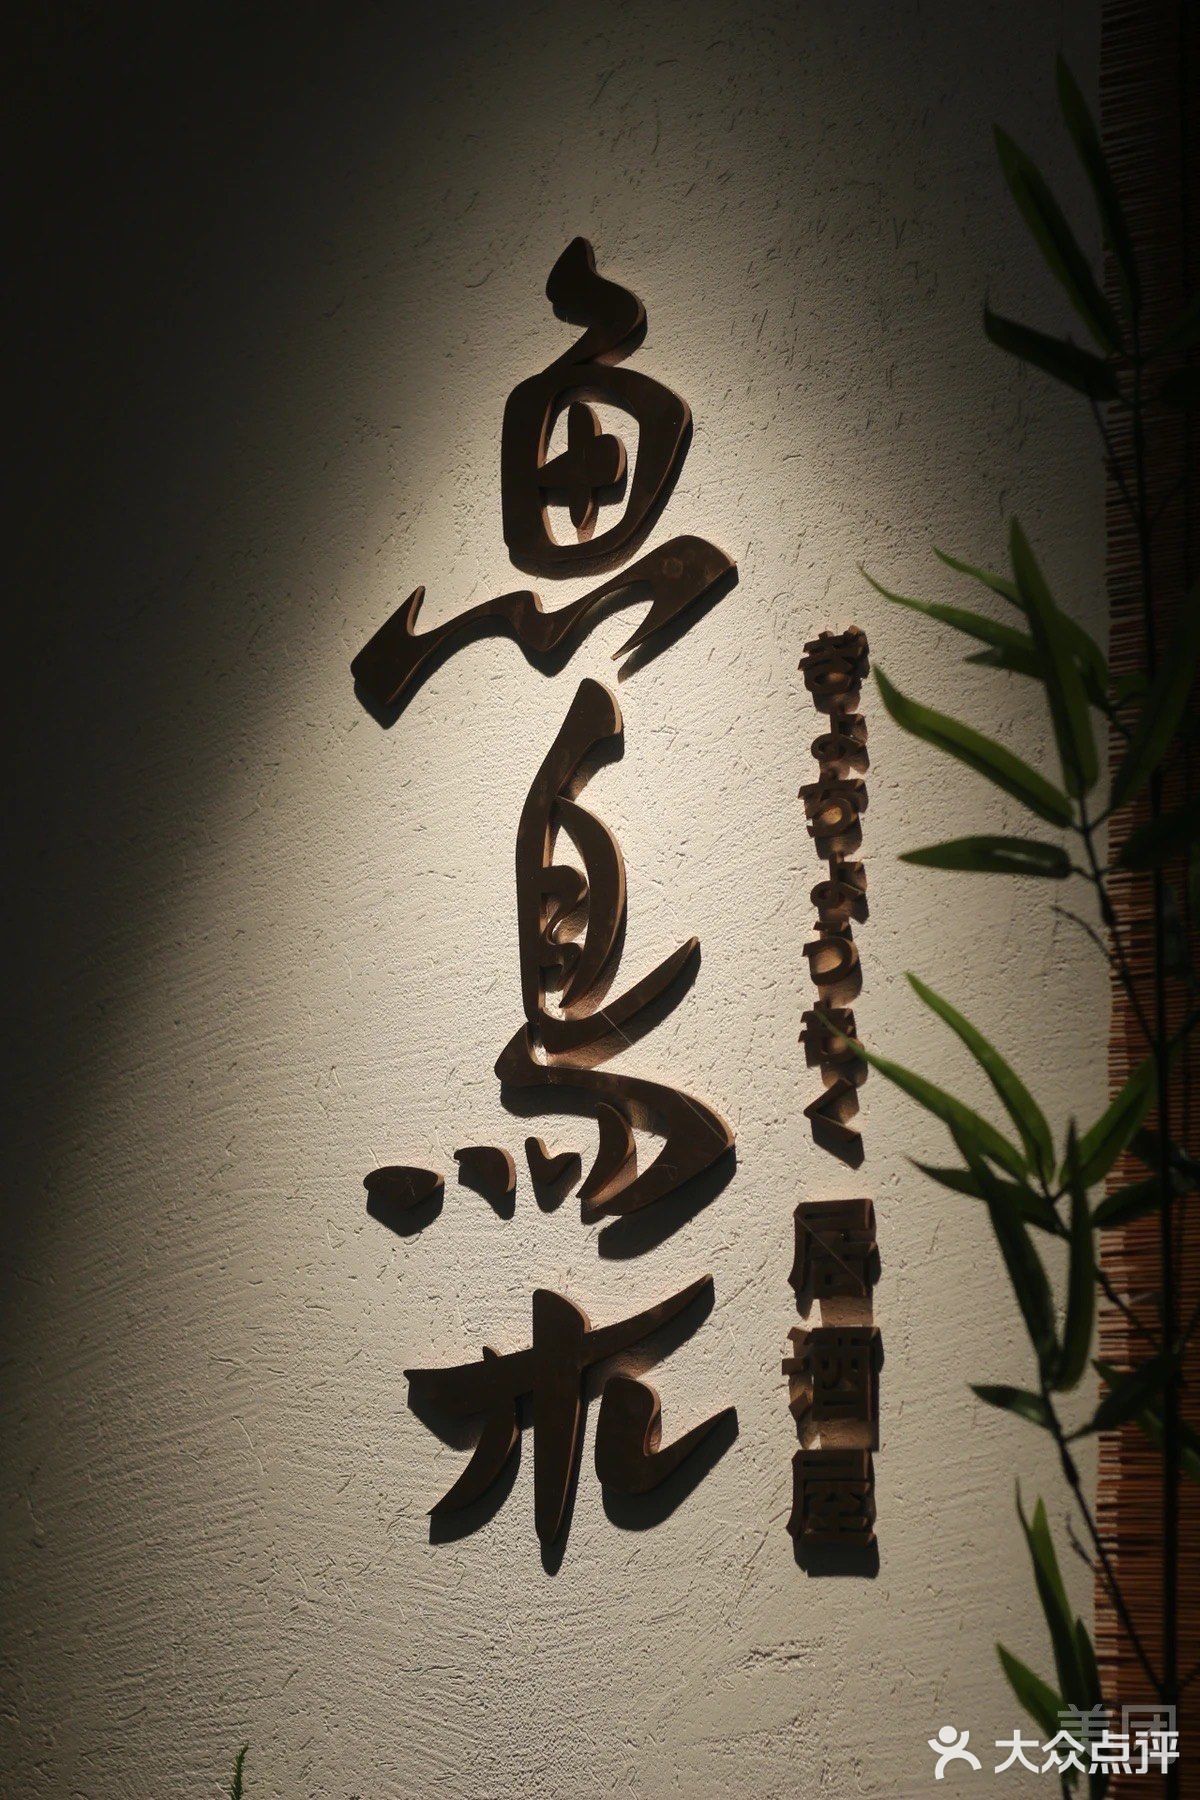 魚鳥木
ぎょちょうもく 居酒屋
美团
大众点评